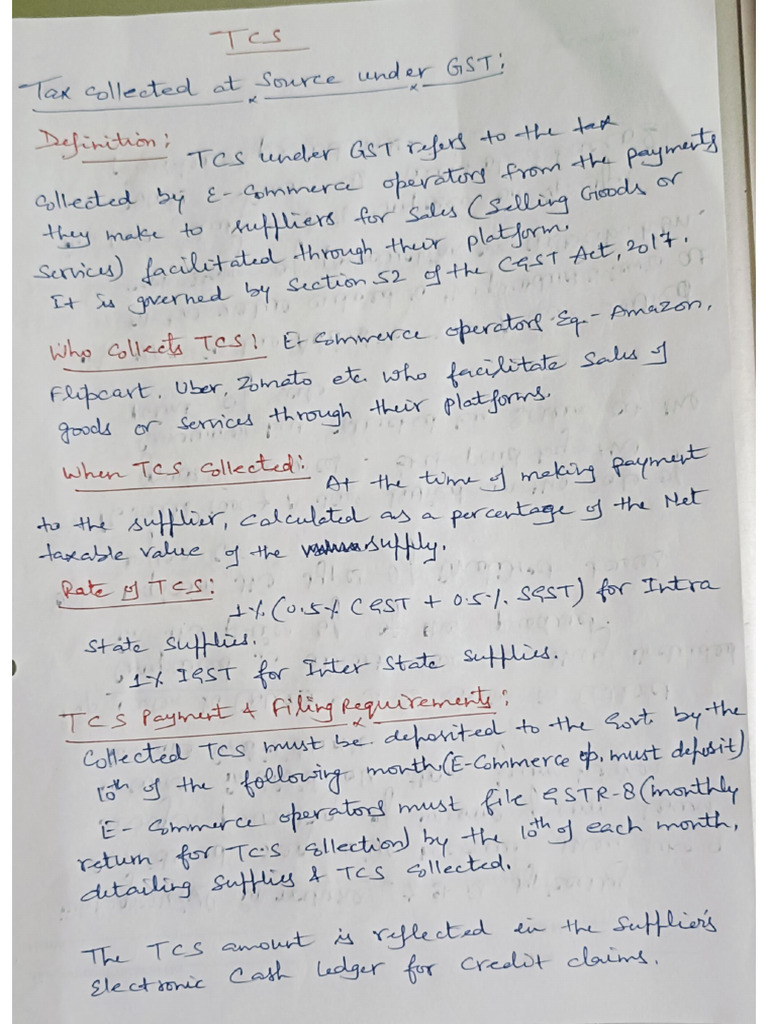 TCS
Tax collected at Source under GST:
Definition: TCS under GST refers to the tax
collected by E-Commerce operators from the payments
they make to suppliers for Sales (Selling Goods or
Services) facilitated through their platform.
It is governed by Section 52 of the CGST Act, 2017.
Who Collects TCS: E-Commerce operators Eg.- Amazon,
Flipcart, Uber, Zomato etc. who facilitate Sales of
goods or services through their platforms.
When TCS Collected: At the time of making payment
to the supplier, calculated as a percentage of the Net
taxable value of the supply.
Rate of TCS:
1% (0.5% CGST + 0.5% SGST) for Intra
State supplies.
1% IGST for Inter State supplies.
TCS Payment & Filing Requirements:
Collected TCS must be deposited to the Govt. by the
10th of the following month (E-Commerce op. must deposit)
E-Commerce operators must file GSTR-8 (monthly
return for TCS collection) by the 10th of each month,
detailing supplies & TCS collected.
The TCS amount is reflected in the Supplier's
Electronic Cash ledger for credit claims.